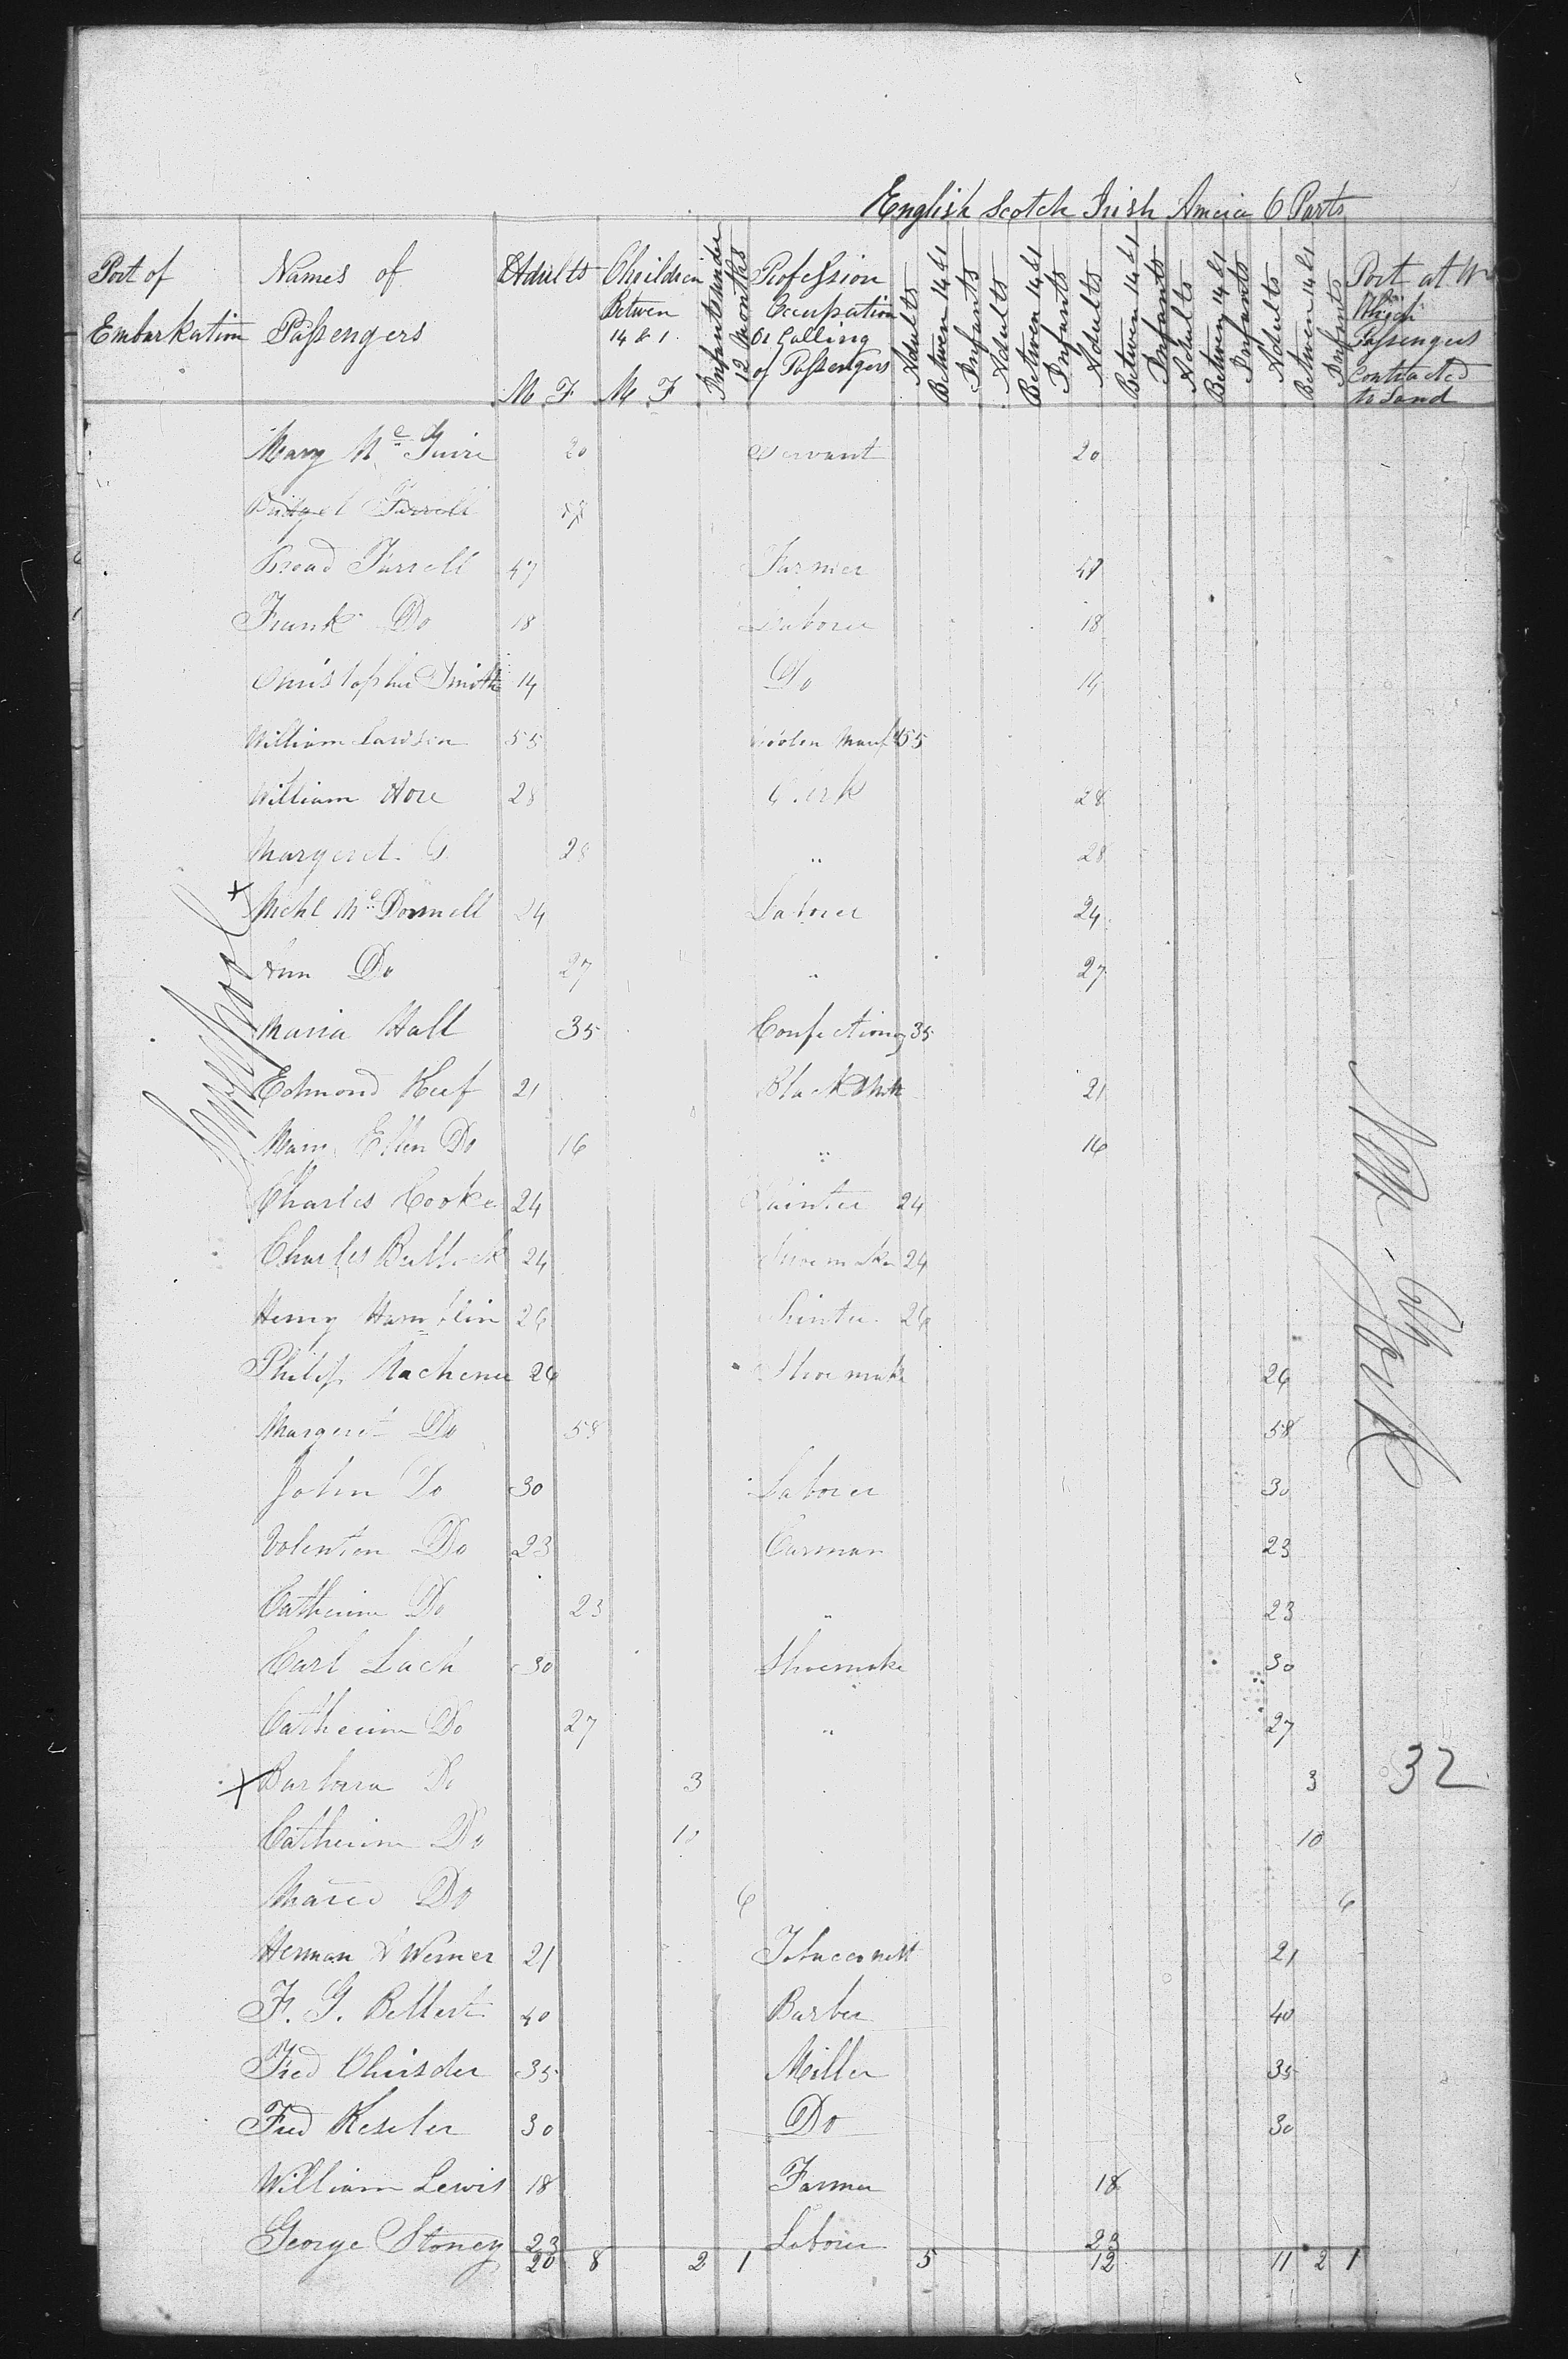 English Scotch Irish America 6 Parts
Port of Embarkation
Names of Passengers
Adults M F
Children Betwen 14 & 1 M F
Infants under 12 Months
Profession Occupation Or Calling of Passengers
Adults Betwen 14 & 1 Infants Adults Betwen 14 & 1 Infants Adults Betwen 14 & 1 Infants Adults Betwen 14 & 1 Infants Adults Betwen 14 & 1 Infants
Port at Which Passengers Contracted to Land
Liverpool
New-York
Mary Mc Guire 20 Servant 20
Bridget Farrell
Farrell 47 Farmer 47
Frank Do 18 Laborer 18
Christopher Smith 14 Do 14
William Lawson 55 Woolen Manf 55
William Hore 28 Clerk 28
Margeret 28 " 28
+ Michl Mc Donnell 24 Laborer 24
Ann Do 27 " 27
Maria Hall 35 Confectiony 35
Edmond Keef 21 Blacksmith 21
Mary Ellen Do 16 " 16
Charles Cooke 24 Painter 24
Charles Bullock 24 Shoemaker 24
Henry Hamblin 26 26
Philip 26 Shoemak 26
Margeret Do 58 58
John Do 30 Laborer 30
Volenten Do 23 Carman 23
Catherine Do 23 " 23
Carl Lach 30 Shoemake 30
Catherine Do 27 " 27
x Barbara Do 3 3
32
Catherine Do 10 10
Do 6 6
Herman Werner 21 Tobacconist 21
F. G. Bellert 40 Barber 40
Fred 35 Miller 35
Fred Keseler 30 Do 30
William Lewis 18 Farmer 18
George Stoney 23 Laborer 23
20 8 2 1 5 12 11 2 1